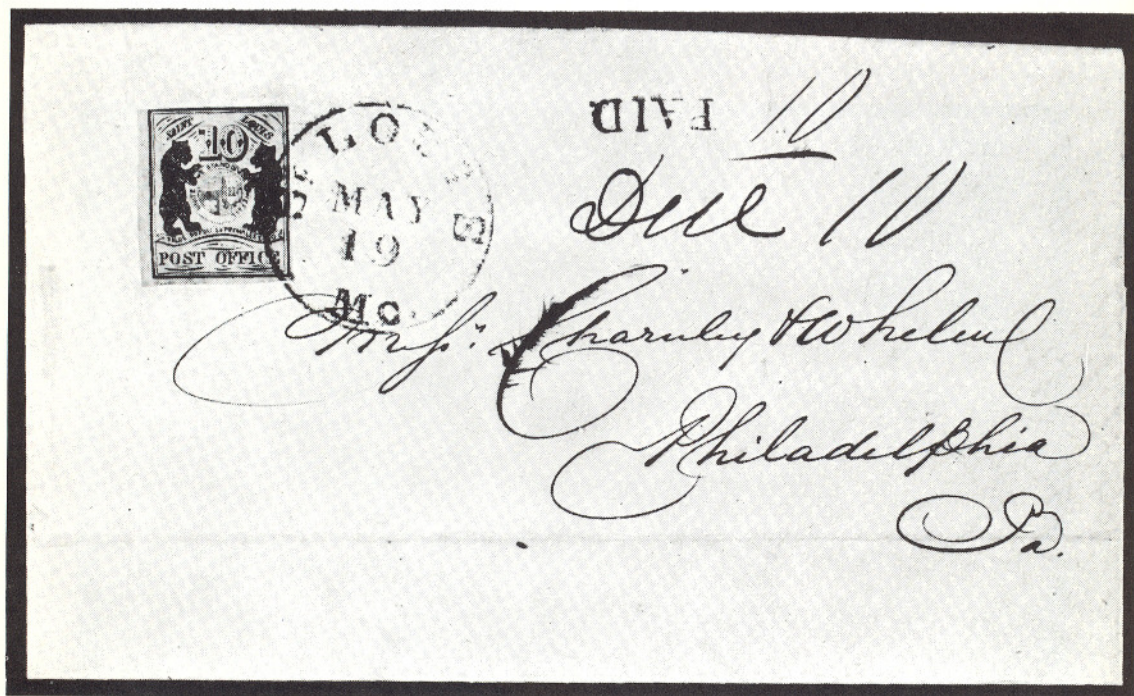 SAINT LOUIS
10
POST OFFICE
ST. LOUIS
MAY
19
Mo.
PAID 10
Due 10
Mess: Charnley & Whelen
Philadelphia
Pa.